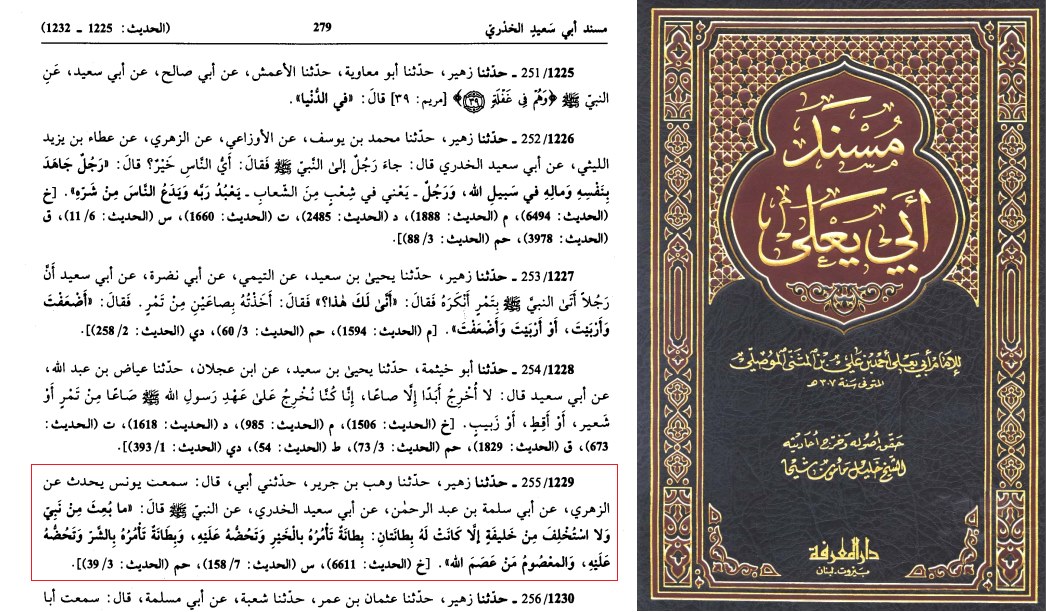 مسند أبي سَعيدِ الخدْريّ
279
(الحديث: 1225 ـ 1232)
251/1225 ـ حدّثنا زهير، حدّثنا أبو معاوية، حدّثنا الأعمش، عن أبي صالح، عن أبي سعيد، عَنِ
النبيّ ﷺ ﴿وَهُمْ فِي غَفْلَةٍ ﴿٣٩﴾﴾ [مريم: ٣٩] قالَ: «في الدُّنْيا».
252/1226 ـ حدّثنا زهير، حدّثنا محمد بن يوسف، عن الأوزاعي، عن الزهري، عن عطاء بن يزيد
الليثي، عن أبي سعيد الخدري قال: جاءَ رَجُلٌ إلى النَّبيّ ﷺ فَقالَ: أيُّ النَّاسِ خَيْرٌ؟ قالَ: «رَجُلٌ جاهَدَ
بِنَفْسِهِ وَمالِهِ في سَبيلِ الله، وَرَجُلٌ ـ يَعْني في شِعْبٍ مِنَ الشّعابِ ـ يَعْبُدُ رَبَّه وَيَدَعُ النَّاسَ مِنْ شَرّهِ». [خ
(الحديث: 6494)، م (الحديث: 1888)، د (الحديث: 2485)، ت (الحديث: 1660)، س (الحديث: 6/ 11)، ق
(الحديث: 3978)، حم (الحديث: 3/ 88)].
253/1227 ـ حدّثنا زهير، حدّثنا يحيىٰ بن سعيد، عن التيمي، عن أبي نضرة، عن أبي سعيد أَنَّ
رَجُلاً أَتى النبيَّ ﷺ بِتَمْرٍ أَنْكَرَهُ فَقالَ: «أَنَّىٰ لَكَ هٰذا؟» فَقالَ: أَخَذْتُهُ بِصاعَيْنِ مِنْ تَمْرٍ. فَقالَ: «أَضْعَفْتَ
وَأَرْبَيْتَ، أَوْ أَرْبَيْتَ وَأَضْعَفْتَ». [م (الحديث: 1594)، حم (الحديث: 3/ 60)، دي (الحديث: 2/ 258)].
254/1228 ـ حدّثنا أبو خيثمة، حدّثنا يحيىٰ بن سعيد، عن ابن عجلان، حدّثنا عياض بن عبد الله،
عن أبي سعيد قال: لا أُخْرِجُ أَبَدًا إلَّا صاعًا، إنَّا كُنَّا نُخْرِجُ عَلىٰ عَهْدِ رَسولِ الله ﷺ صَاعًا مِنْ تَمْرٍ أَوْ
شَعير، أَوْ أَقِطٍ، أَوْ زَبيبٍ. [خ (الحديث: 1506)، م (الحديث: 985)، د (الحديث: 1618)، ت (الحديث:
673)، ق (الحديث: 1829)، حم (الحديث: 3/ 73)، ط (الحديث: 54)، دي (الحديث: 1/ 393)].
255/1229 ـ حدّثنا زهير، حدّثنا وهب بن جرير، حدّثني أبي، قال: سمعت يونس يحدث عن
الزهري، عن أبي سلمة بن عبد الرحمٰن، عن أبي سعيد الخدري، عن النبيّ ﷺ قالَ: «ما بُعِثَ مِنْ نَبِيّ
وَلا اسْتُخْلِفَ مِنْ خَليفَةٍ إلَّا كَانَتْ لَهُ بِطانَتانِ: بِطانَةٌ تَأْمُرُهُ بالْخَيْرِ وَتَحُضُّهُ عَلَيْهِ، وَبِطَانَةٌ تَأْمُرُهُ بِالشَّرّ وَتَحُضُّهُ
عَلَيْهِ، وَالمَعْصُومُ مَنْ عَصَمَ الله». [خ (الحديث: 6611)، س (الحديث: 7/ 158)، حم (الحديث: 3/ 39)].
256/1230 ـ حدّثنا زهير، حدّثنا عثمان بن عمر، حدّثنا شعبة، عن أبي مسلمة، قال: سمعت أبا
مُسْنَد
أَبِي يَعْلَى
للإمَام أبي يَعلى أحمَد بن عَليّ بن المثنى الموُصليّ
المتوفى سَنة ٣٠٧ هـ
حقق اصُوله وَخرج أحَاديثه
الشيخ خليل مأمون شيحا
دار المعرفة
بَيروت ـ لبنان